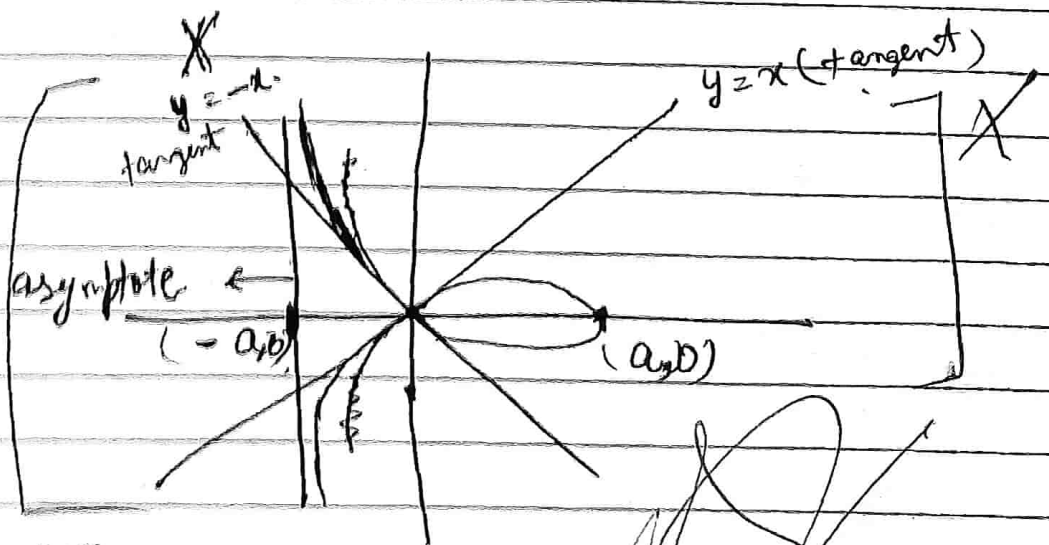 X
y = -x
tangent
y = x (tangent)
X
asymptote ←
(-a,0)
(a,0)